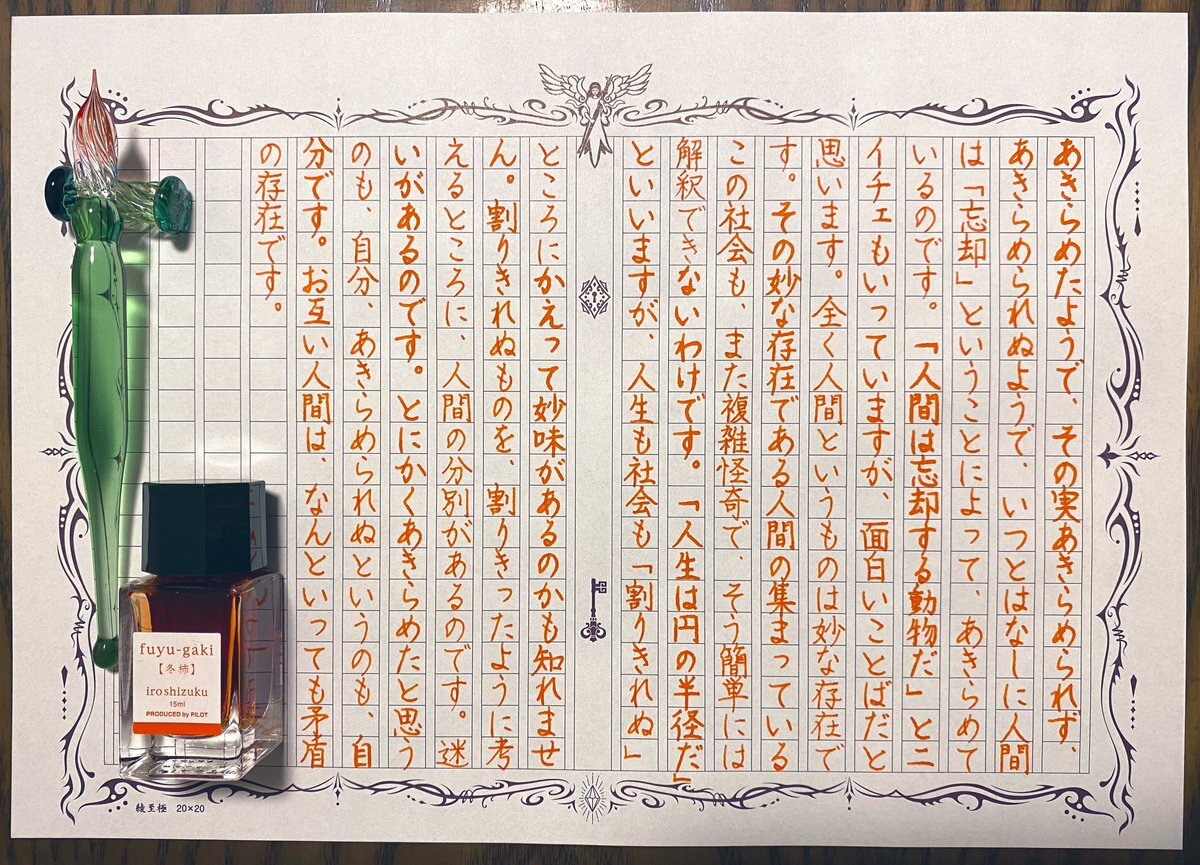 あきらめたようで、その実あきらめられず、
あきらめられぬようで、いつとはなしに人間
は「忘却」ということによって、あきらめて
いるのです。「人間は忘却する動物だ」とニ
イチェもいっていますが、面白いことばだと
思います。全く人間というものは妙な存在で
す。その妙な存在である人間の集まっている
この社会も、また複雑怪奇で、そう簡単には
解釈できないわけです。「人生は円の半径だ」
といいますが、人生も社会も「割りきれぬ」
ところにかえって妙味があるのかも知れませ
ん。割りきれぬものを、割りきったように考
えるところに、人間の分別があるのです。迷
いがあるのです。とにかくあきらめたと思う
のも、自分、あきらめられぬというのも、自
分です。お互い人間は、なんといっても矛盾
の存在です。
fuyu-gaki
【冬柿】
iroshizuku
15ml
PRODUCED by PILOT
綾至極 20×20